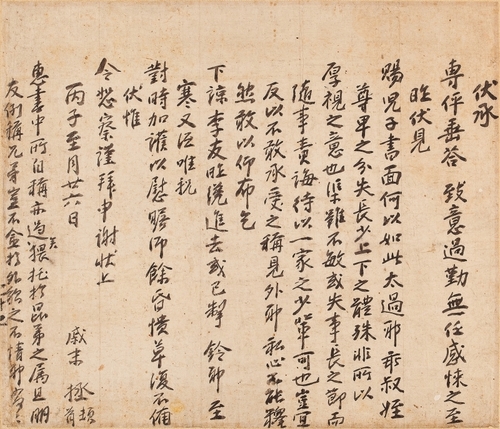 伏承
專伻垂答 致意過勤無任感悚之至
昨伏見
賜兒子書面何以如此太過耶乖叔姪
尊卑之分失長少上下之體殊非所以
厚視之意也渠雖不敏或失事長之節而
隨事責誨待以一家之少輩可也豈宜
反以不敢承受之稱見外耶私心不能釋
然敢以仰布乞
下諒李友昨纔進去或已掣鈴耶至
寒又近唯祝
對時加謹以慰瞻仰餘昏憒草復不備
伏惟
令恕察謹拜申謝狀上
丙子至月廿六日
戚末 拯 頓首
惠書中所自稱亦過矣猥托於昆弟之属且明
友例稱兄等豈不愈於外